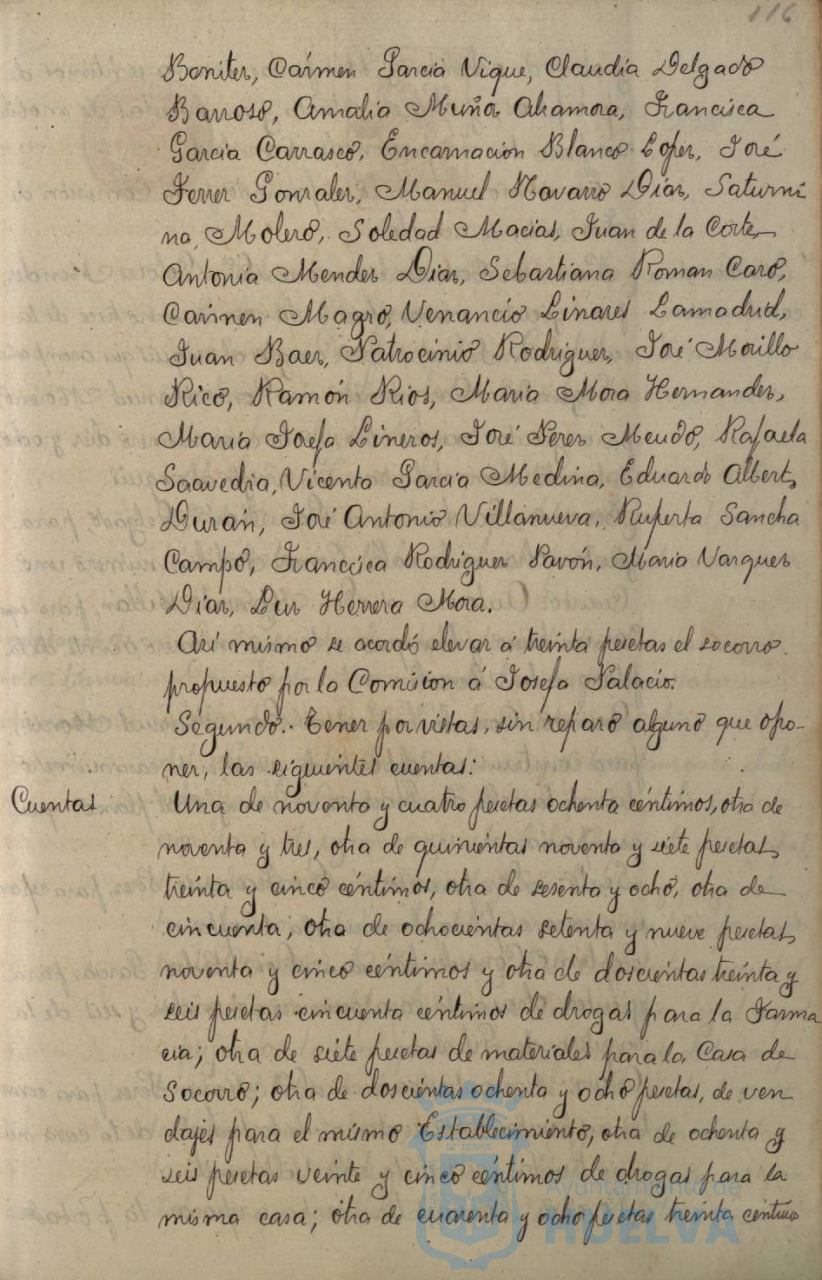 116
Benitez, Cármen Garcia Vique, Claudia Delgado
Barroso, Amalia Muñoz Ahamora, Francisca
Garcia Carrasco, Encarnacion Blanco Lopez, José
Ferrer Gonzalez, Manuel Navarro Diaz, Saturni
na Molero, Soledad Macias, Juan de la Corte,
Antonia Mendez Diaz, Sebastiana Roman Caro,
Carmen Magro, Venancio Linares Lamadrid,
Juan Baez, Patrocinio Rodriguez, José Morillo
Rico, Ramón Rios, Maria Mora Hernandez,
Maria Josefa Lineros, José Perez Mendo, Rafaela
Saavedra, Vicenta Garcia Medina, Eduardo Albert,
Durán, José Antonio Villanueva, Ruperta Sancha
Campo, Francisca Rodriguez Pavón, Maria Vazquez
Diaz, Luz Herrera Mora.
Asi mismo se acordó elevar á treinta pesetas el socorro
propuesto por la Comision á Josefa Palacio.
Segundo.- Tener por vistas, sin reparo alguno que opo-
ner, las siguientes cuentas:
Cuentas Una de noventa y cuatro pesetas ochenta céntimos, otra de
noventa y tres, otra de quinientas noventa y siete pesetas
treinta y cinco céntimos, otra de sesenta y ocho, otra de
cincuenta, otra de ochocientas setenta y nueve pesetas
noventa y cinco céntimos y otra de doscientas treinta y
seis pesetas cincuenta céntimos de drogas para la Farma
cia; otra de siete pesetas de materiales para la Casa de
Socorro; otra de doscientas ochenta y ocho pesetas, de ven
dajes para el mismo Establecimiento, otra de ochenta y
seis pesetas veinte y cinco céntimos de drogas para la
misma casa; otra de cuarenta y ocho pesetas treinta centimos
Ayuntamiento de
HUELVA